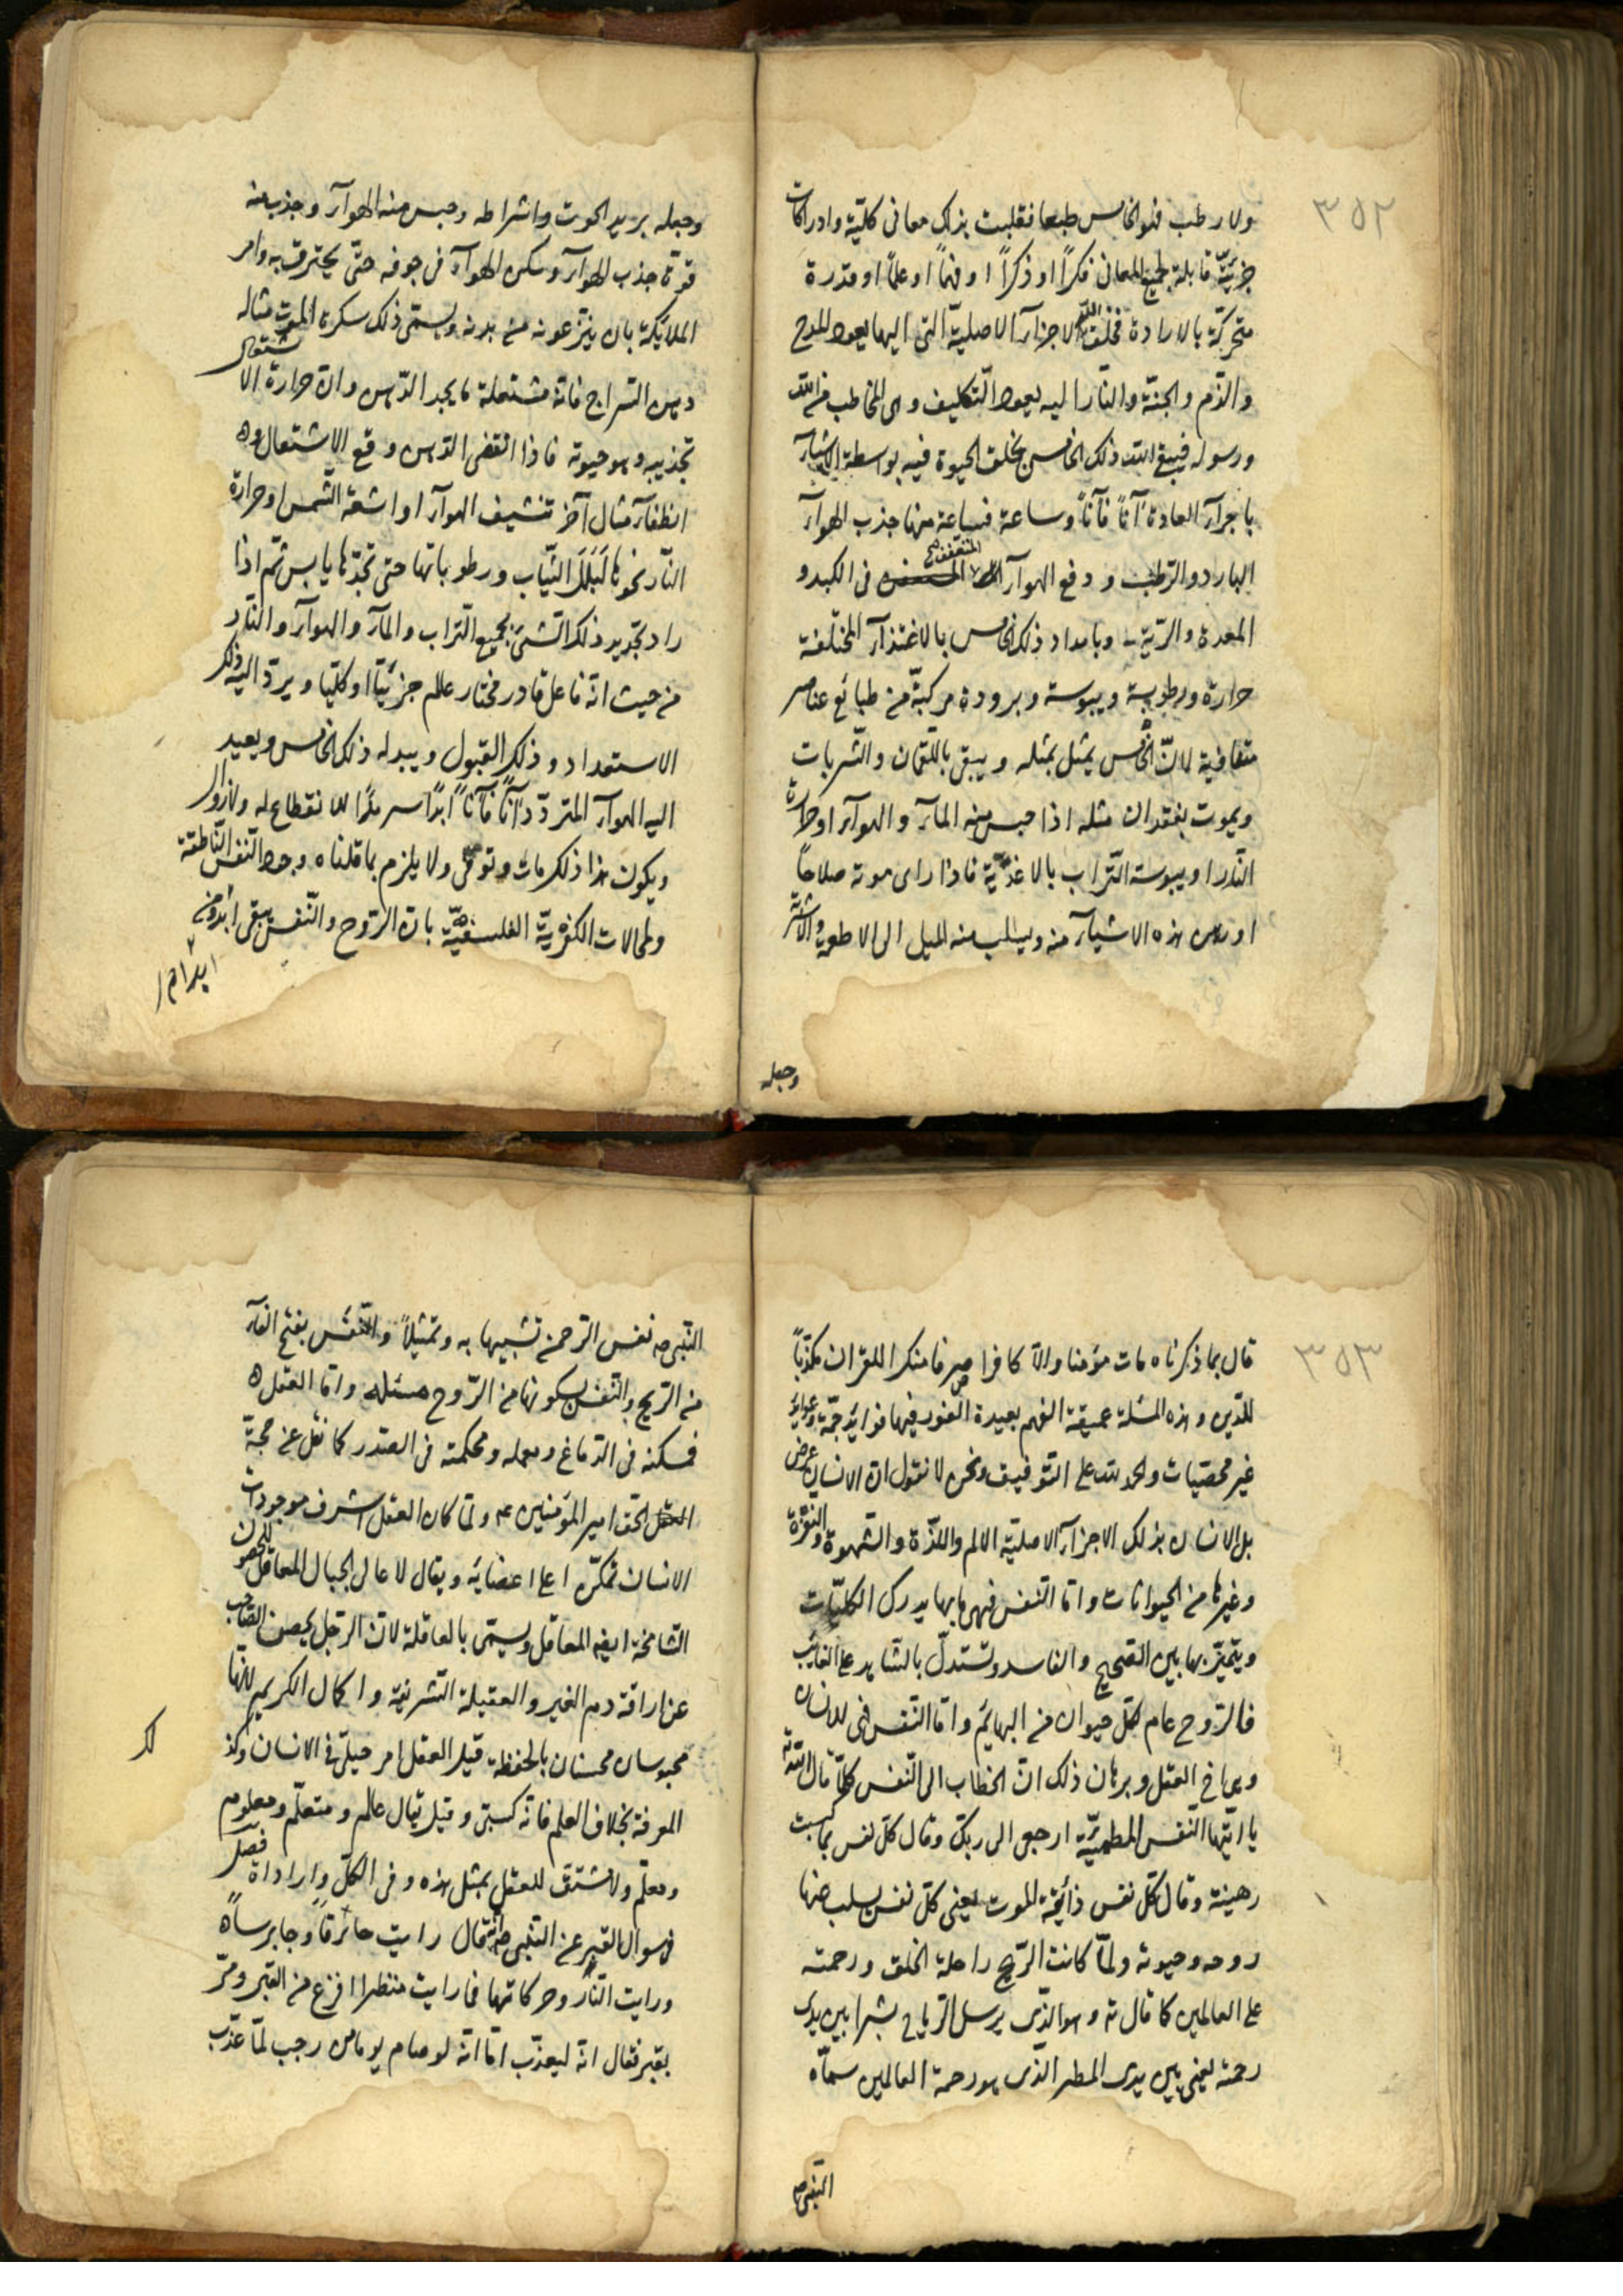 ٣٥٢
ولا رطب فهو الخامس طبعا فقلبت بذلك معانى كليّة وادراكات
جزئيّة قابلة لجميع المعانى فكرًا او ذكرًا او فهمًا او علمًا او قدرة
متحركة بالارادة فخلق الله الاجزآء الاصليّة التى اليها يعود المدح
والذّم والجنّة والنّار اليه يعود التّكليف وهى المخاطب من الله
ورسوله فيبقى الله ذلك الخامس بخلق الحيوة فيه بواسطة الاشيآء
باجرآء العادة آنًا فآنًا وساعة فساعة منها جذب الهوآء
البارد والرّطب ودفع الهوآء المتعفّن فى الكبد و
المعدة والرّية وبامداد ذلك الخامس بالاغتذآء المختلفة
حرارة ورطوبة ويبوسة وبرودة مركبة من طبائع عناصر
لانّ الخامس يمثل بمثله ويبقى باللقمان والشّربات
ويموت بفقدان مثله اذا حبس منه المآء والهوآء او حرارة
النّار او يبوسة التّراب بالاغذية فاذا راى موته صلاحًا
او هذه الاشيآء منه ويسلب منه الميل الى الاطعمة والاشربة
وجعله
وجعله بريد الموت واشراطه وحبس منه الهوآء وجذب منه
قوة جذب الهوآء وسكن الهوآء فى جوفه حتّى يحترق به وامر
الملائكة بان ينتزعونه من بدنه ويسمّى ذلك سكرة الموت مثاله
دهن السّراج فانّه مشتعلة ما يجد الدّهن وانّ حرارة الاشتعال
تجذبه وهو حيوته فاذا انقضى الدّهن وقع الاشتعال وه
انطفآء مثال آخر تنشيف الهوآء او اشعة الشّمس او حرارة
النّار نحوها لبلل الثّياب ورطوباتها حتى تجدّها يابس ثم اذا
راد تجديد ذلك الشئ بجميع التراب والمآء والهوآء والنّار
من حيث انّه فاعل قادر مختار عالم جزئيّا او كليّا ويردّ اليه ذلك
الاستعداد وذلك القبول ويبدله ذلك الخامس ويعيد
اليه الهوآء المتردّد آنًا فآنًا ابدًا سرمدًا لا انقطاع له ولا زوال
ويكون هذا ذلك مات وتوفى ولا يلزم بما قلناه وجود النّفس النّاطقة
والمحالات الكفريّة الفلسفيّة بانّ الرّوح والنّفس يبقى ابدا من
٣٥٣
قال بما ذكرناه مات مؤمنا والّا كافرا صرفا منكرا للقران مكذّبًا
للدّين وهذه المسئلة عميقة الفهم بعيدة الغور فيها فوايد جمّة وعوايد
غير محصيات والحمد لله على التّوفيق ونحن لا نقول انّ الانسان عرض
بل الانسان بذلك الاجزآء الاصليّة الالم واللذّة والشّهوة والنفرة
وغيرها من الحيوانات وامّا النّفس فهى ما بها يدرك الكليّات
ويتميّز بها بين الصّحيح والفاسد وتستدلّ بالشّاهد على الغايب
فالرّوح عام لكلّ حيوان من البهائم وامّا النّفس فى للانسان
وهى العقل وبرهان ذلك انّ الخطاب الى النّفس كلّها قال الله ته
يا ايّتها النّفس المطمئنّة ارجعى الى ربّك وقال كلّ نفس بما كسبت
رهينة وقال كلّ نفس ذائقة الموت يعنى كلّ نفس يسلب منها
روحه وحيوته ولمّا كانت الرّيح راحلة الخلق ورحمته
على العالمين كما قال ته وهو الّذى يرسل الرّياح بشرا بين يدى
رحمته يعنى بين يدى المطر الّذى هو رحمة العالمين سمّاه
النّبى ص
النّبى ص نفس الرّحمن تشبيها به وتمثيلًا والنّفَس بفتح الفآء
من الرّيح والنّفس بسكونها من الرّوح مسئلة وامّا العقل ه
فمسكنه فى الدّماغ وعمله ومحكمته فى الصّدر كما نقل عن حجّة
الحق امير المؤمنين ع ولمّا كان العقل اشرف موجودات
الانسان تمكّن اعلى اعضائه ويقال لاعالى الجبال المعاقل للحصون
الشامخة ايضا المعاقل ويسمّى بالعاقلة لانّ الرّجل يحصن الصّاحب
عن اراقة دم الغير والعقيلة الشّريفة واكمال الكريم لانّها
محبوسان محسنان بالحفظة قيل العقل امر حبلّى فى الانسان وكذ
المعرفة بخلاف العلم فانّه كسبّى وقيل يقال عالم ومتعلّم ومعلوم
ومعلّم ولا مشتق للعقل بمثل هذه وفى الكلّ وارادات فصل
فى سوال القبر عن النّبى ص انّه قال رايت
ورايت النّار وحركاتها فما رايت منظرا افزع من القبر ومرّ
بقبر فقال انّه ليعذّب امّا انّه لو صام يوما من رجب لمّا عذّب